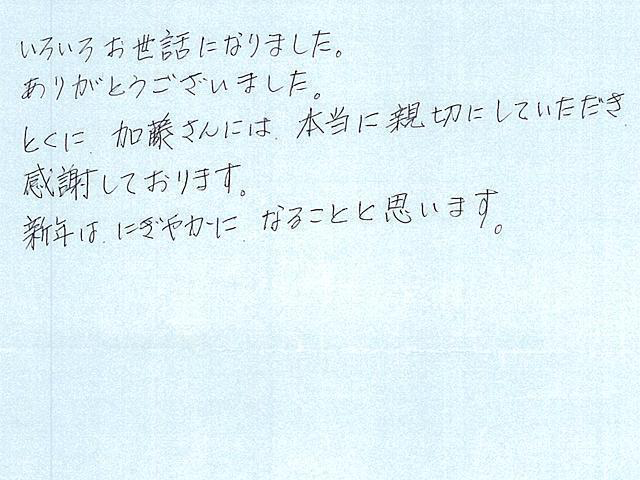 いろいろお世話になりました。
ありがとうございました。
とくに、加藤さんには、本当に親切にしていただき
感謝しております。
新年は、にぎやかに、なることと思います。